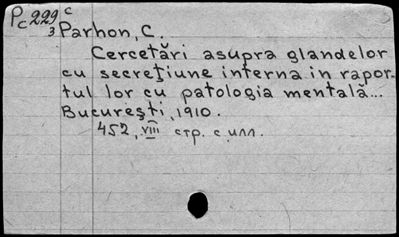 Pc 229 c
3 Parhon, C.
Cercetări asupra glandelor
cu secreţiune interna in rapor-
tul lor cu patologia mentală...
Bucureşti, 1910.
452, VIII стр. с илл.